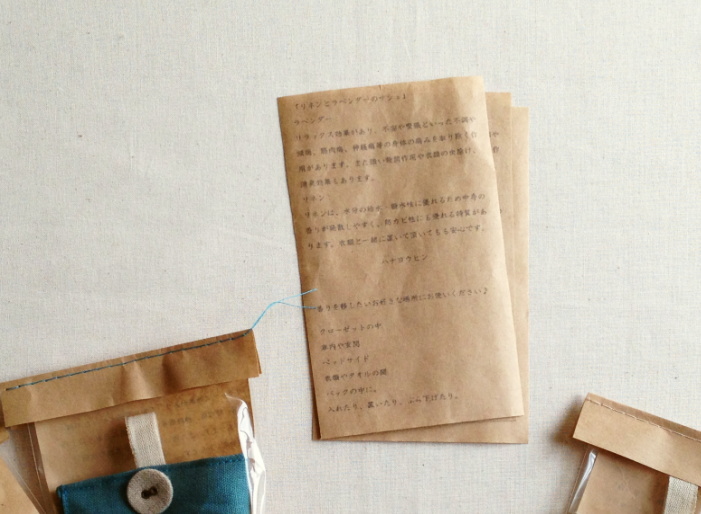 『リネンとラベンダーのサシェ』
ラベンダー
リラックス効果があり、不安や緊張といった不調や
頭痛、筋肉痛、神経痛等の身体の痛みを和らげる作
用があります。また強い殺菌作用や虫除け、
消臭効果もあります。
リネン
リネンは、水分の吸水・発水性に優れるため中身の
香りが発散しやすく、防カビ性にも優れる特質があ
ります。衣類と一緒に置いて頂いても安心です。
ハナヨウヒン
香りを移したいお好きな場所にお使いください♪
クローゼットの中
車内や玄関
ベッドサイド
衣類やタオルの間
バックの中に。
入れたり、置いたり、ぶら下げたり。